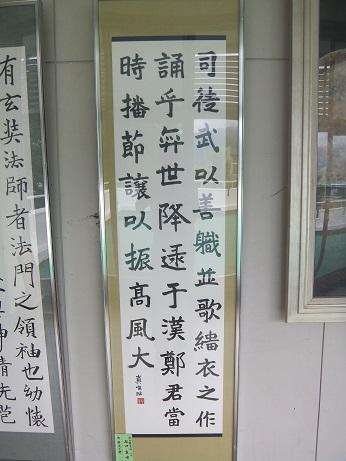 司徒武以善職並歌緇衣之作
誦乎弈世降逮于漢鄭君當
時播節讓以振髙風大
有玄奘法師者法門之領袖也幼懷
神清先苞